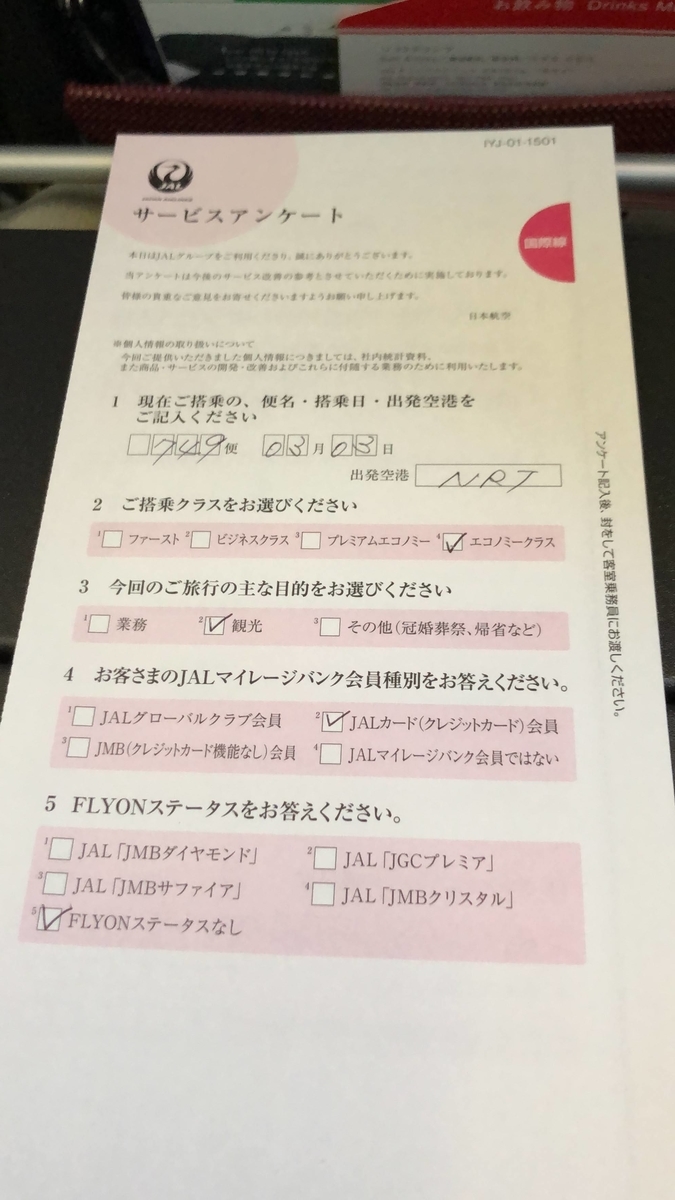 お飲み物 Drinks M
IYJ-01-1501
JAL
サービスアンケート
国際線
本日はJALグループをご利用くださり、誠にありがとうございます。
当アンケートは今後のサービス改善の参考とさせていただくために実施しております。
皆様の貴重なご意見をお寄せくださいますようお願い申し上げます。
日本航空
※個人情報の取り扱いについて
今回ご提供いただきました個人情報につきましては、社内統計資料、
また商品・サービスの開発・改善およびこれらに付随する業務のために利用いたします。
1 現在ご搭乗の、便名・搭乗日・出発空港を
ご記入ください
749便 03月03日
出発空港 NRT
2 ご搭乗クラスをお選びください
1 ファースト 2 ビジネスクラス 3 プレミアムエコノミー 4 エコノミークラス
3 今回のご旅行の主な目的をお選びください
1 業務 2 観光 3 その他(冠婚葬祭、帰省など)
4 お客さまのJALマイレージバンク会員種別をお答えください。
1 JALグローバルクラブ会員 2 JALカード(クレジットカード)会員
3 JMB(クレジットカード機能なし)会員 4 JALマイレージバンク会員ではない
5 FLYONステータスをお答えください。
1 JAL「JMBダイヤモンド」 2 JAL「JGCプレミア」
3 JAL「JMBサファイア」 4 JAL「JMBクリスタル」
5 FLYONステータスなし
アンケート記入後、封をして客室乗務員にお渡しください。